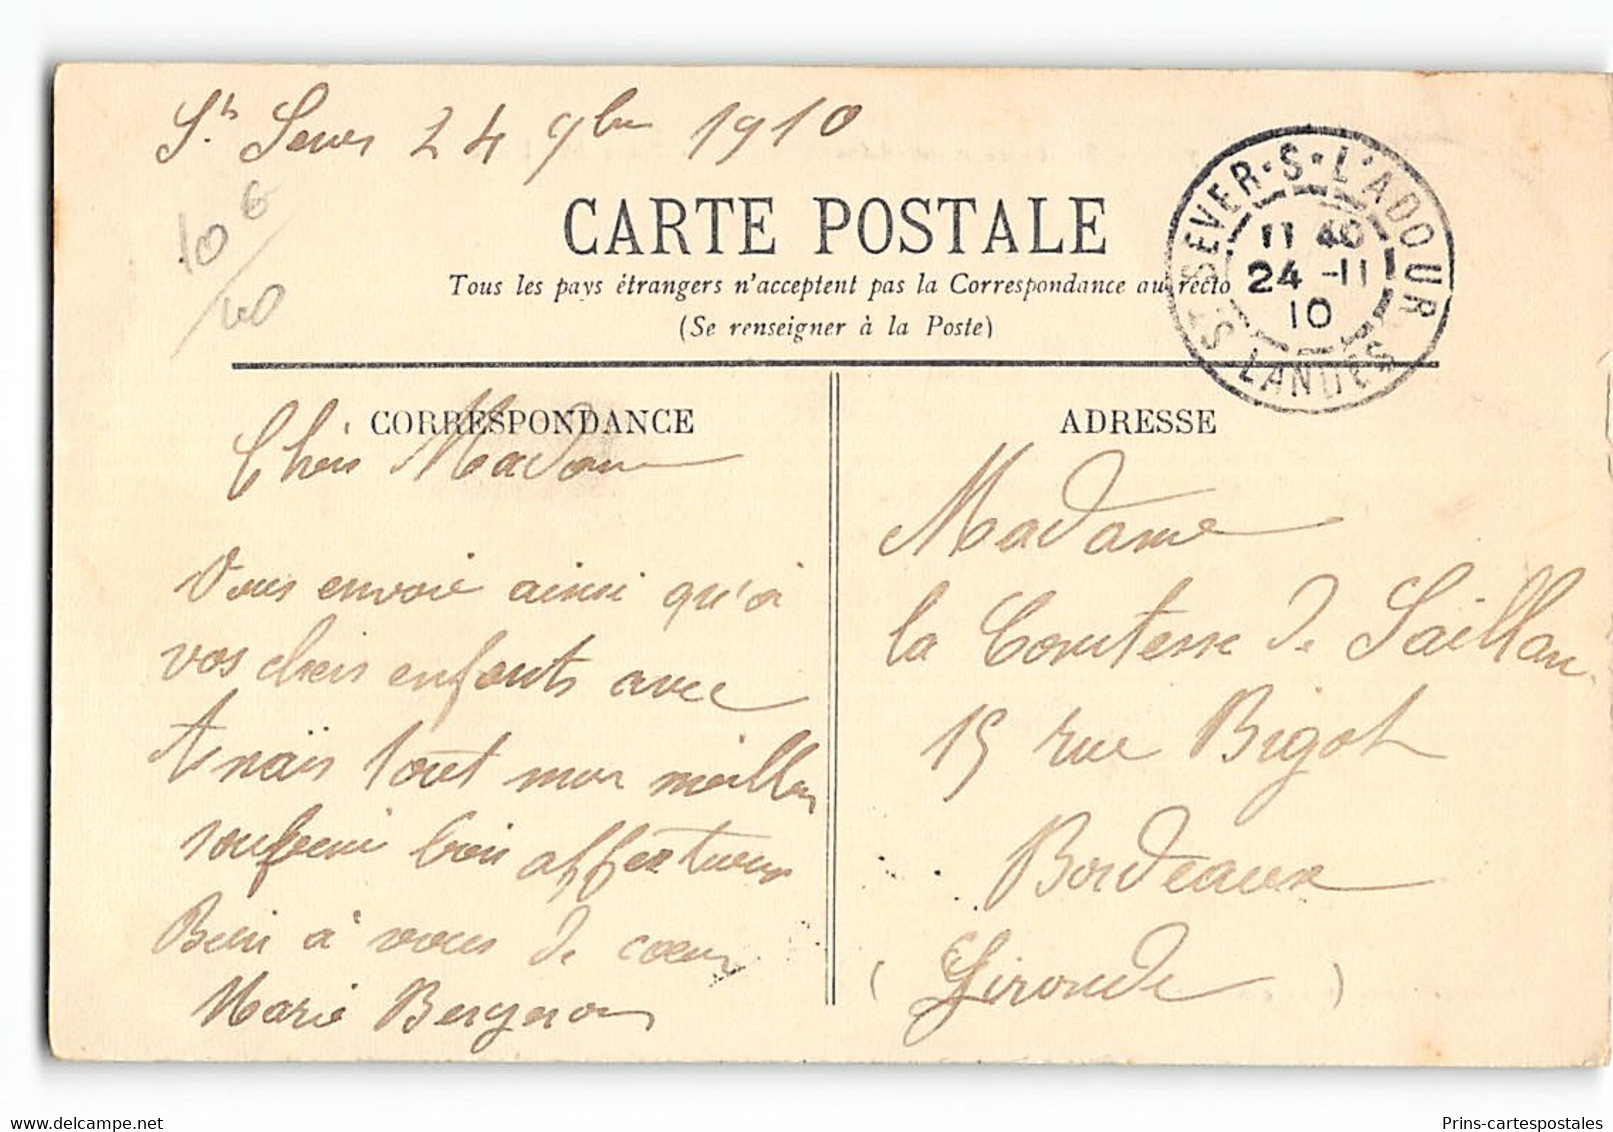 St Sever 24 9bre 1910
10 €
40
CARTE POSTALE
Tous les pays étrangers n'acceptent pas la Correspondance au recto
(Se renseigner à la Poste)
ST SEVER-S-L'ADOUR
11 40
24 -11
10
LANDES
CORRESPONDANCE
Chère Madame
Vous envoie ainsi qu'à
vos chers enfants avec
Anaïs tout mon meilleur
souvenir bien affectueux
Bien à vous de cœur
Marie Bergeron
ADRESSE
Madame
la Comtesse de Saillan
15 rue Bigot
Bordeaux
(Gironde)
Prins-cartespostales